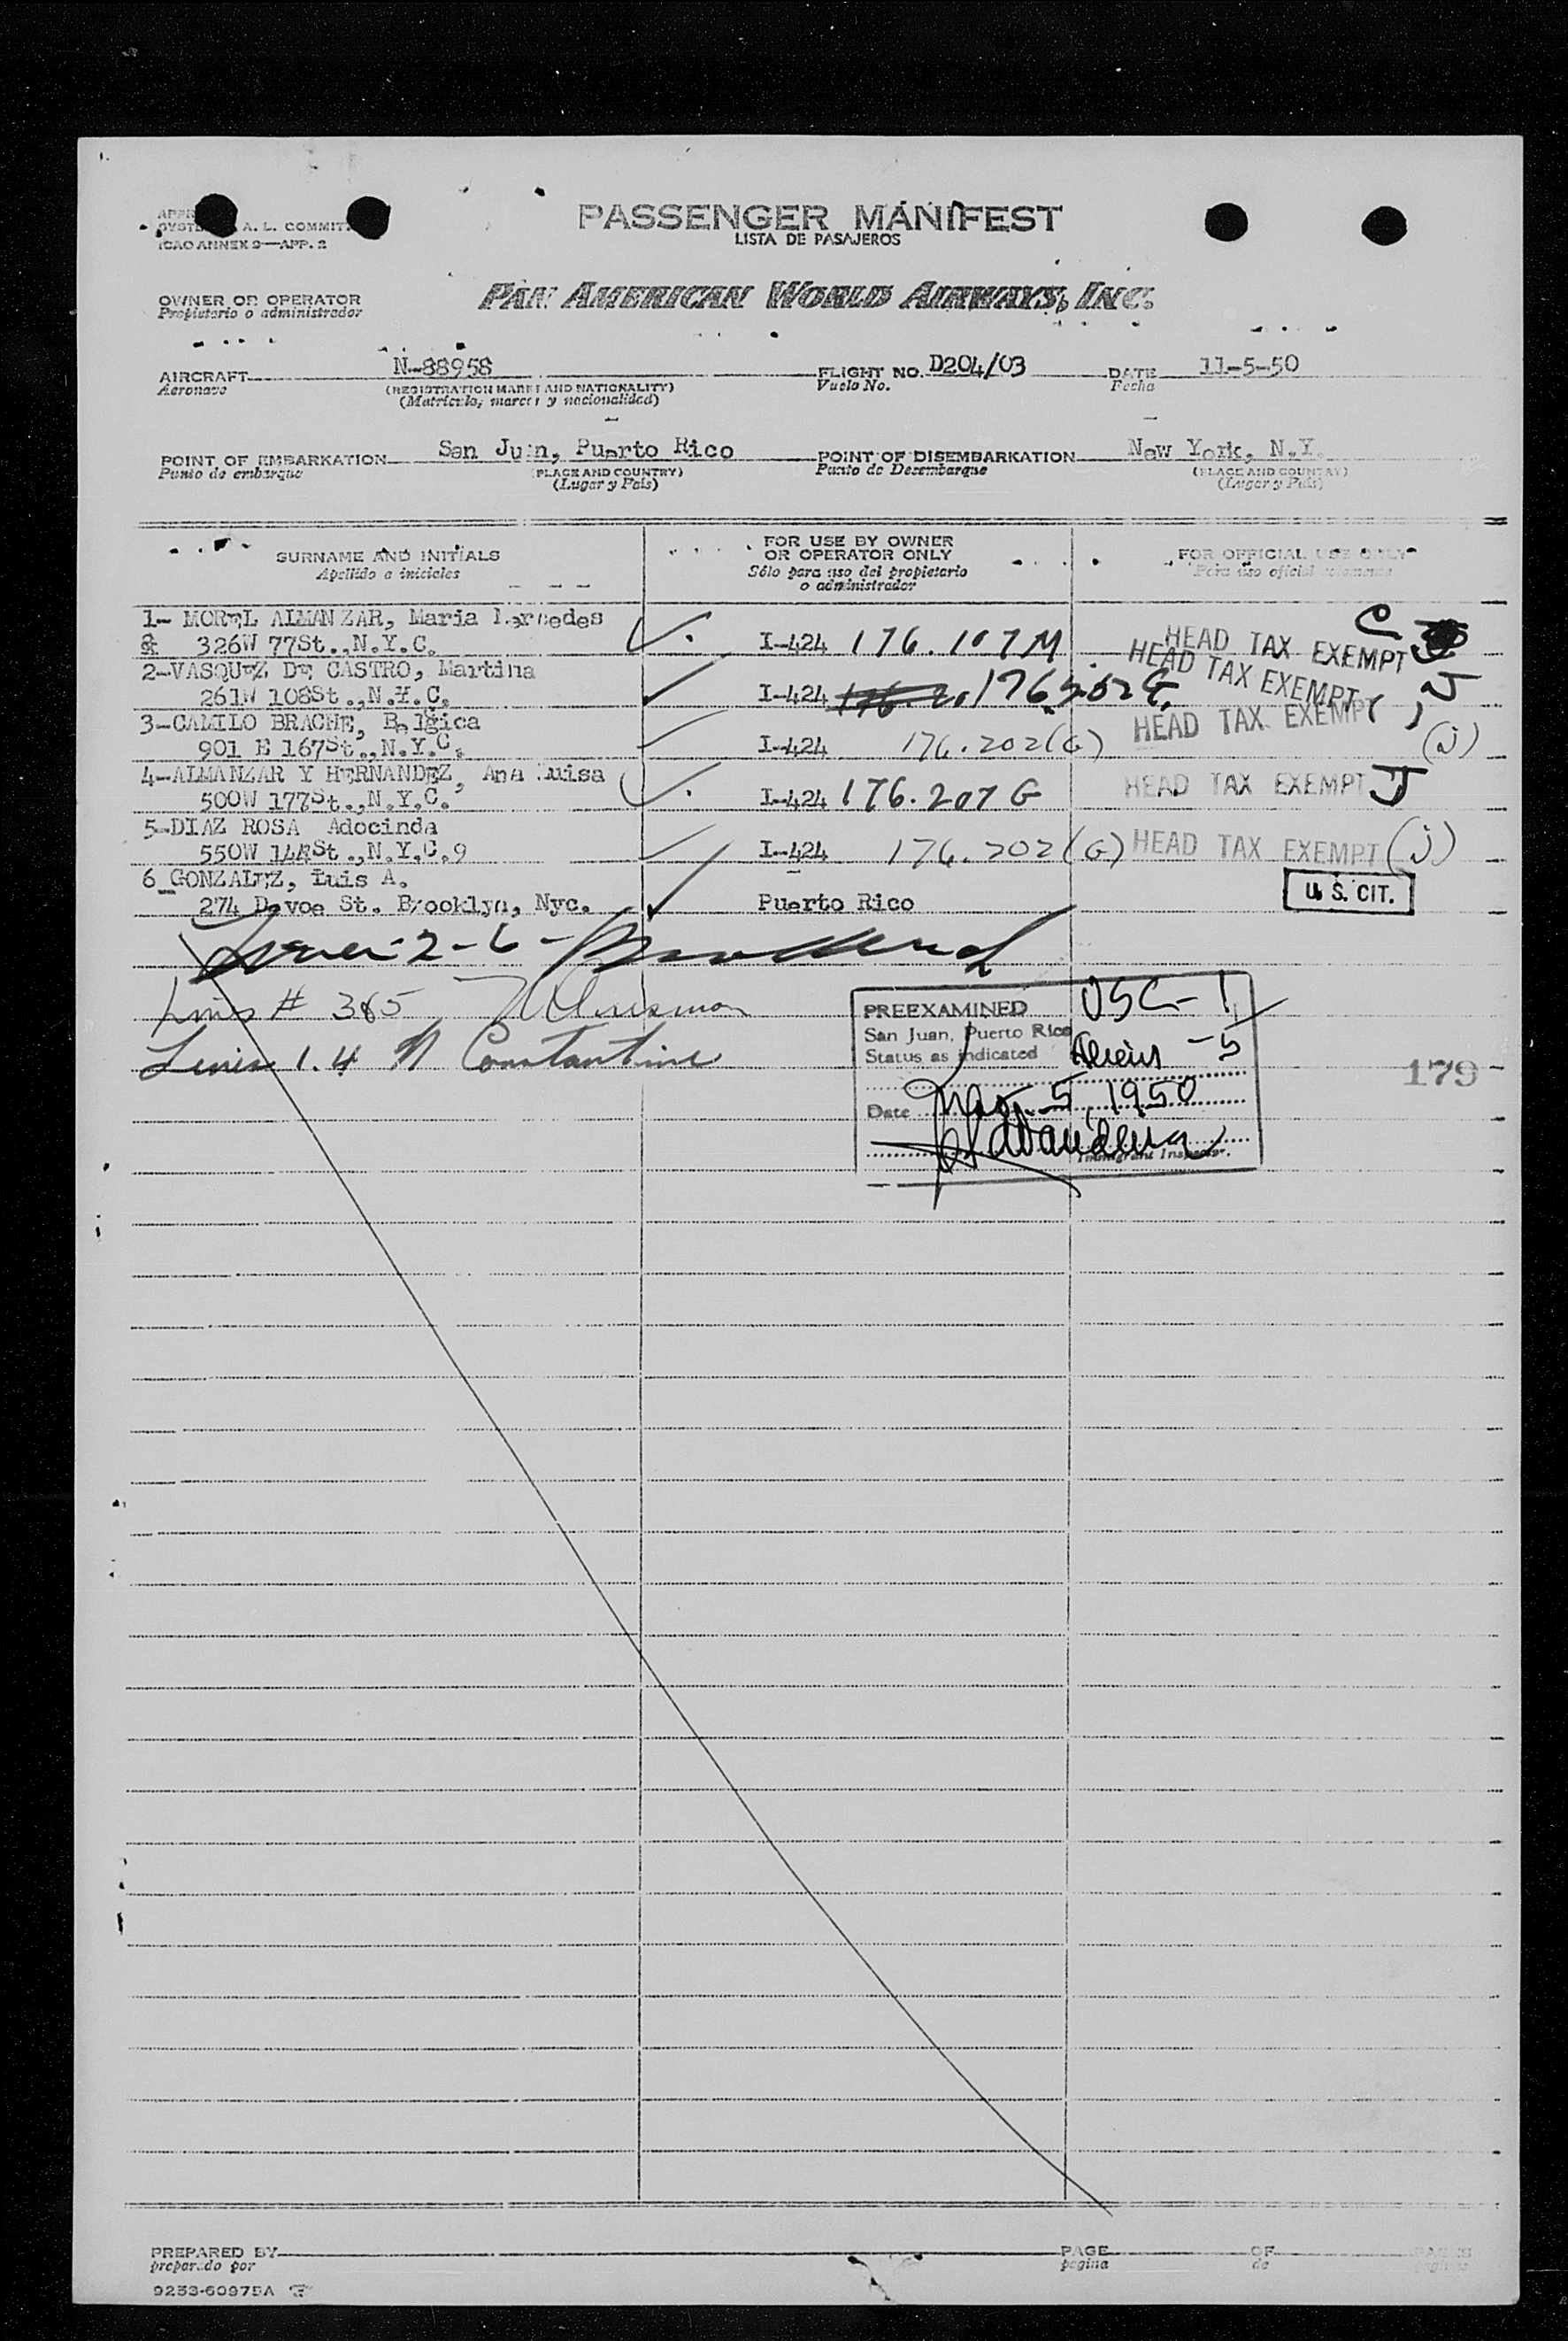 A. L. COMMIT
ICAO ANNEX 9—APP. 2
PASSENGER MANIFEST
LISTA DE PASAJEROS
OWNER OR OPERATOR
Propietario o administrador
PAN AMERICAN WORLD AIRWAYS, INC.
AIRCRAFT N-88958 FLIGHT NO. D204/03 DATE 11-5-50
Aeronave (REGISTRATION MARKS AND NATIONALITY) Vuelo No. Fecha
(Matrícula, marcas y nacionalidad)
POINT OF EMBARKATION San Juan, Puerto Rico POINT OF DISEMBARKATION New York, N.Y.
Punto de embarque (PLACE AND COUNTRY) Punto de Desembarque (PLACE AND COUNTRY)
(Lugar y País) (Lugar y País)
SURNAME AND INITIALS FOR USE BY OWNER OR OPERATOR ONLY FOR OFFICIAL USE ONLY
Apellido e iniciales Sólo para uso del propietario o administrador Para uso oficial solamente
1- MOREL ALMANZAR, Maria Mercedes C
326W 77St.,N.Y.C. I-424 176.107M HEAD TAX EXEMPT
2-VASQUEZ DE CASTRO, Martina
261W 108St.,N.Y.C. I-424 176.202G HEAD TAX EXEMPT J
3-CAMILO BRACHE, Belgica
901 E 167St.,N.Y.C. I-424 176.202(G) HEAD TAX EXEMPT (J)
4-ALMANZAR Y HERNANDEZ, Ana Luisa
500W 177St.,N.Y.C. I-424 176.207 G HEAD TAX EXEMPT J
5-DIAZ ROSA Adocinda
550W 144St.,N.Y.C.9 I-424 176.202(G) HEAD TAX EXEMPT (J)
6 GONZALEZ, Luis A.
274 Devoe St. Brooklyn, Nyc. Puerto Rico U.S. CIT.
2-6-
# 385
Lines 1.4 N Constantine
PREEXAMINED USC-1
San Juan, Puerto Rico
Status as indicated Aliens -5
Date Nov. 5, 1950
Immigrant Inspector.
179
PREPARED BY PAGE OF PAGES
preparado por página de páginas
9233-60975A